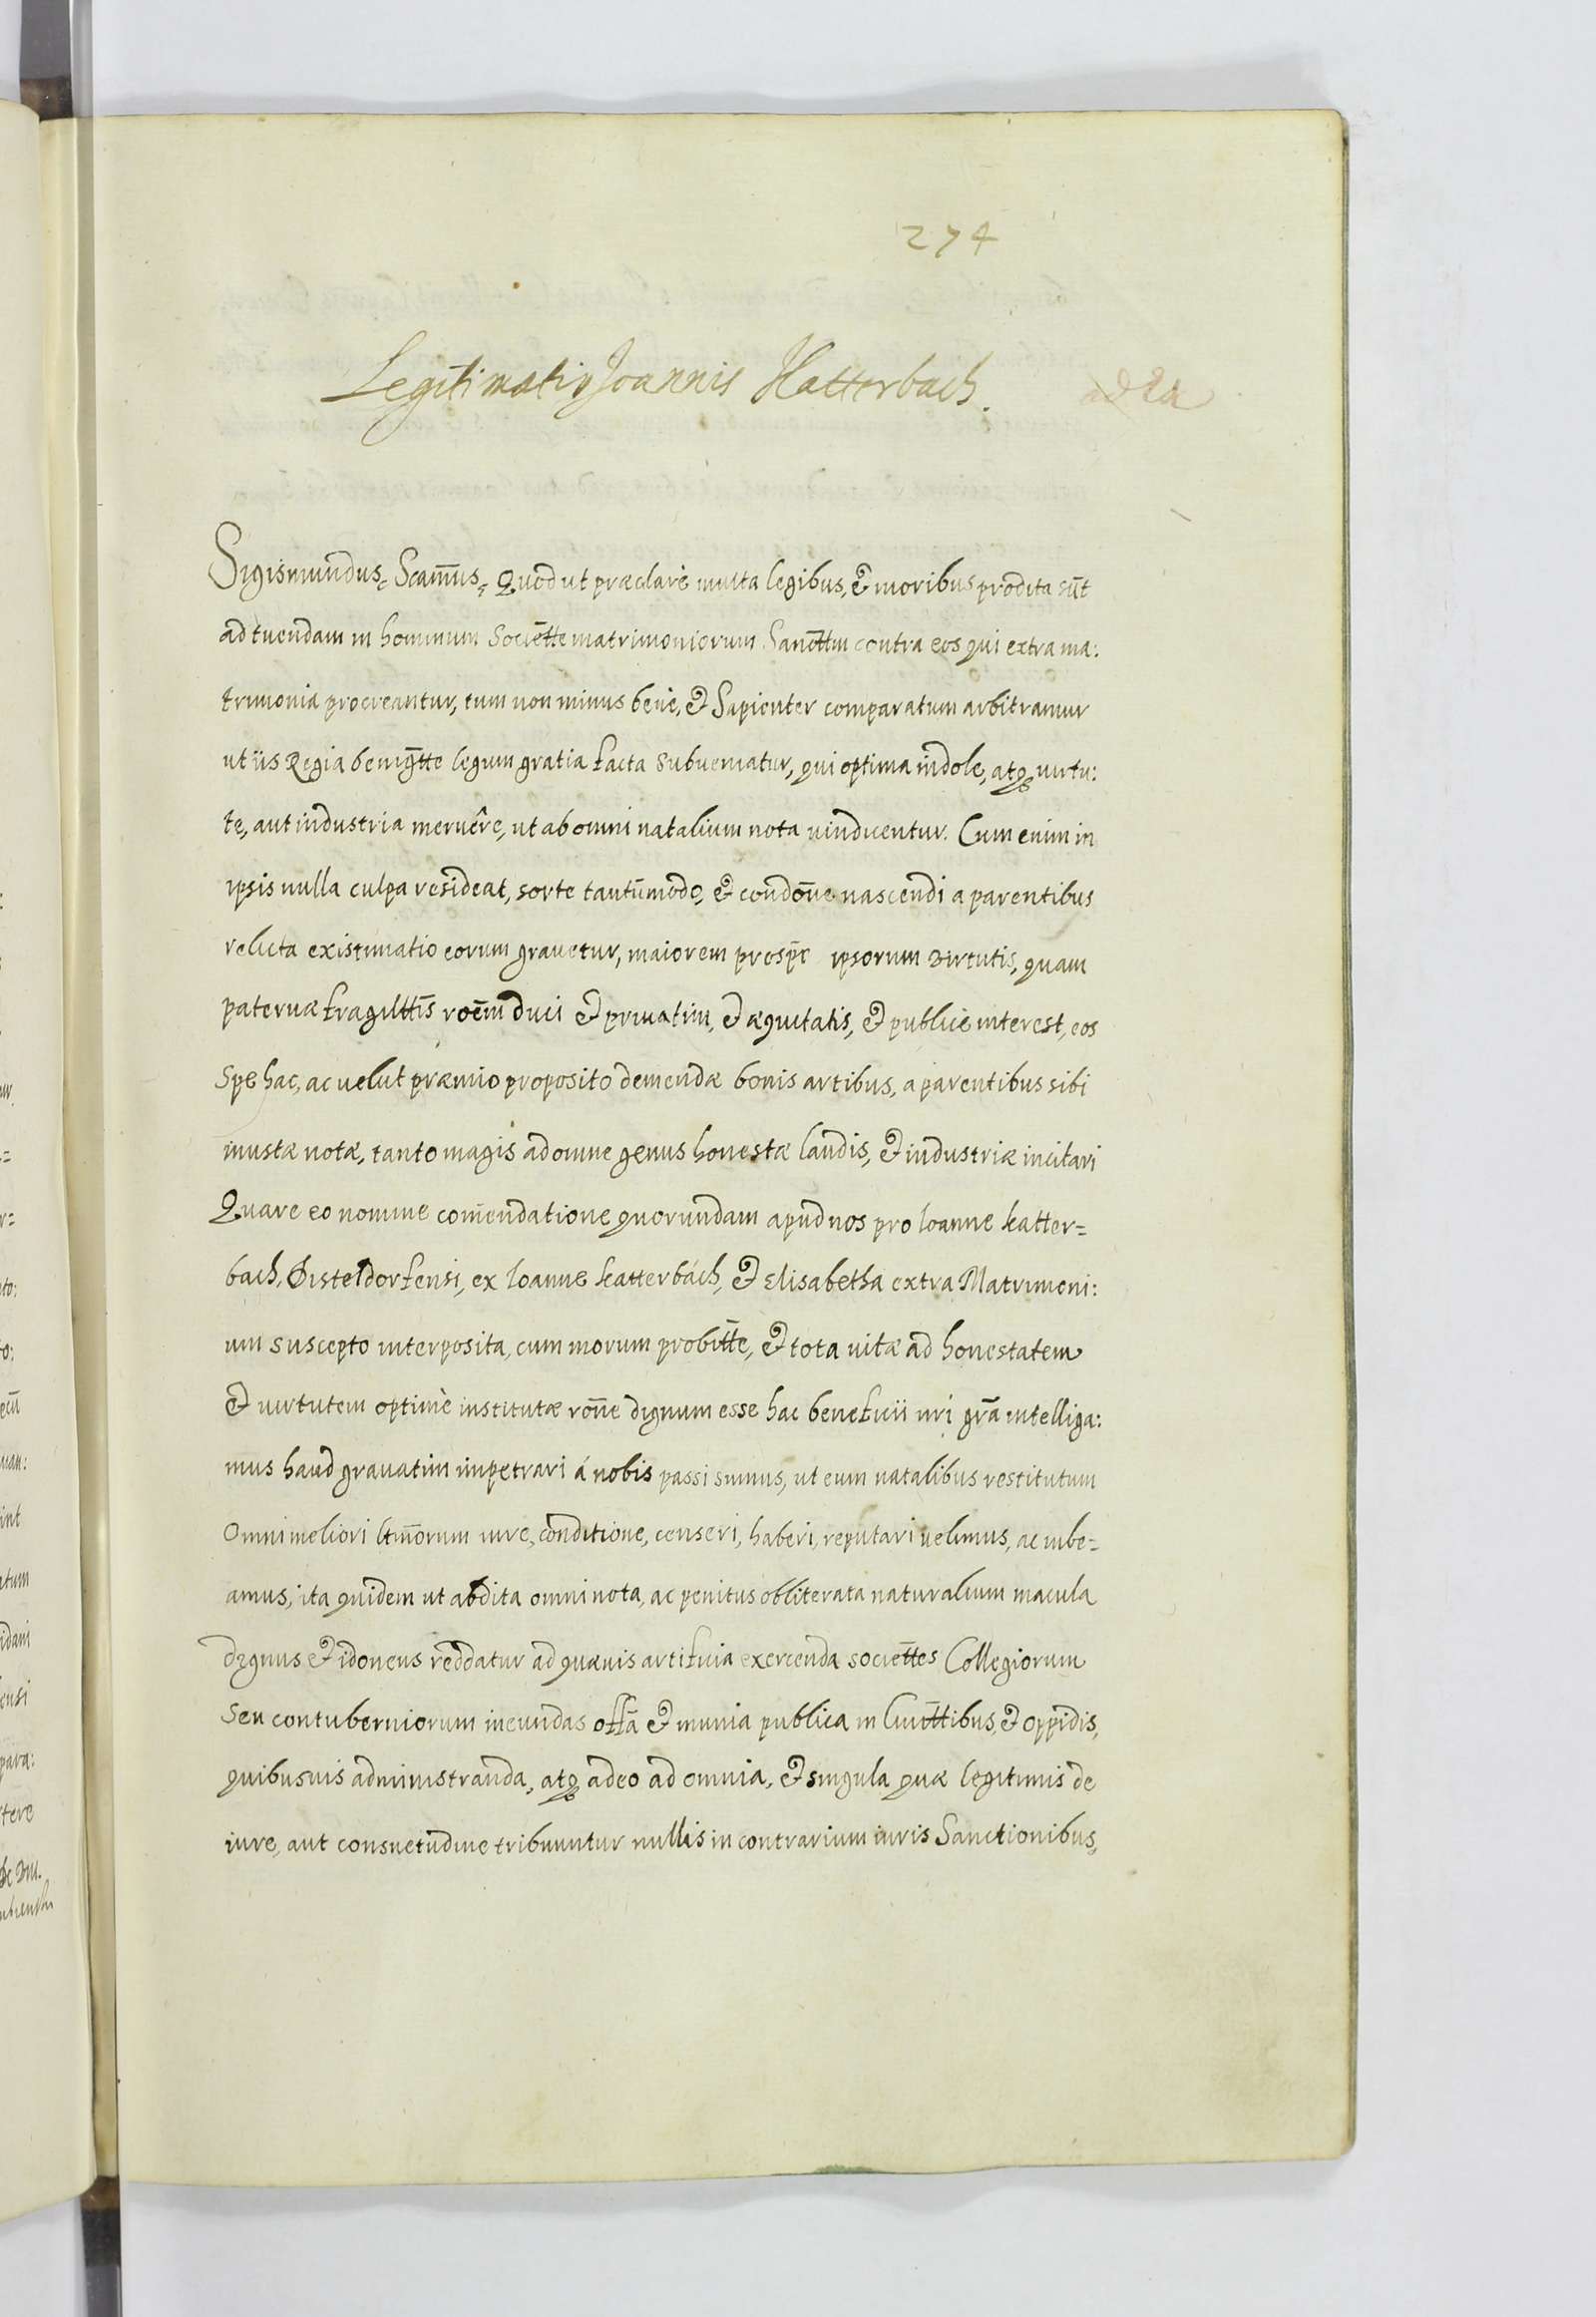 274
Legitimatio Joannis Hatterbach.
Sigismundus, Scam̄us, Quod ut præclarè multa legibus, & moribus prodita sūt
ad tuendam in hominum Sociēt̄te matrimoniorum Sancttm contra eos qui extra ma:
trimonia procreantur, tum non minus benè, & Sapienter comparatum arbitramur
ut iis Regia benigt̄te legum gratia facta Subueniatur, qui optima indole, atq₃ uirtu:
te, aut industria meruêre, ut ab omni natalium nota uindicentur. Cum enim in
ipsis nulla culpa resideat, sorte tantūmodo, & condōne nascendi a parentibus
relicta existimatio eorum grauetur, maiorem prosp̄r ipsorum Virtutis, quam
paternæ fragilttīs roēm duci & priuatim, & æquitatis, & publicè interest, eos
Spe hac, ac uelut præmio proposito demendæ bonis artibus, a parentibus sibi
inustæ notæ, tanto magis ad omne genus honestæ laudis, & industriæ incitari
Quare eo nomine com̄endatione quorundam apud nos pro Ioanne katter=
bach, Disteldorfensi, ex Ioanne katterbách, & Elisabetha extra Matrimoni:
um suscepto interposita, cum morum probitt̄e, & tota uitæ ad honestatem
& uirtutem optimè institutæ rōne dignum esse hac beneficii nri grā intelliga:
mus haud grauatim impetrari á nobis passi sumus, ut eum natalibus restitutum
Omni meliori ltmōrum iure, conditione, censeri, haberi, reputari uelimus, ac iube=
amus, ita quidem ut abdita omni nota, ac penitus obliterata naturalium macula
dignus & idoneus reddatur ad quæuis artificia exercenda societt̄es Collegiorum
Seu contuberniorum ineundas offā & munia publica in Ciuitt̄ibus, & oppidis,
quibusuis administranda, atq₃ adeo ad omnia, & singula quæ legitimis de
iure, aut consuetudine tribuuntur nullis in contrarium iuris Sanctionibus,